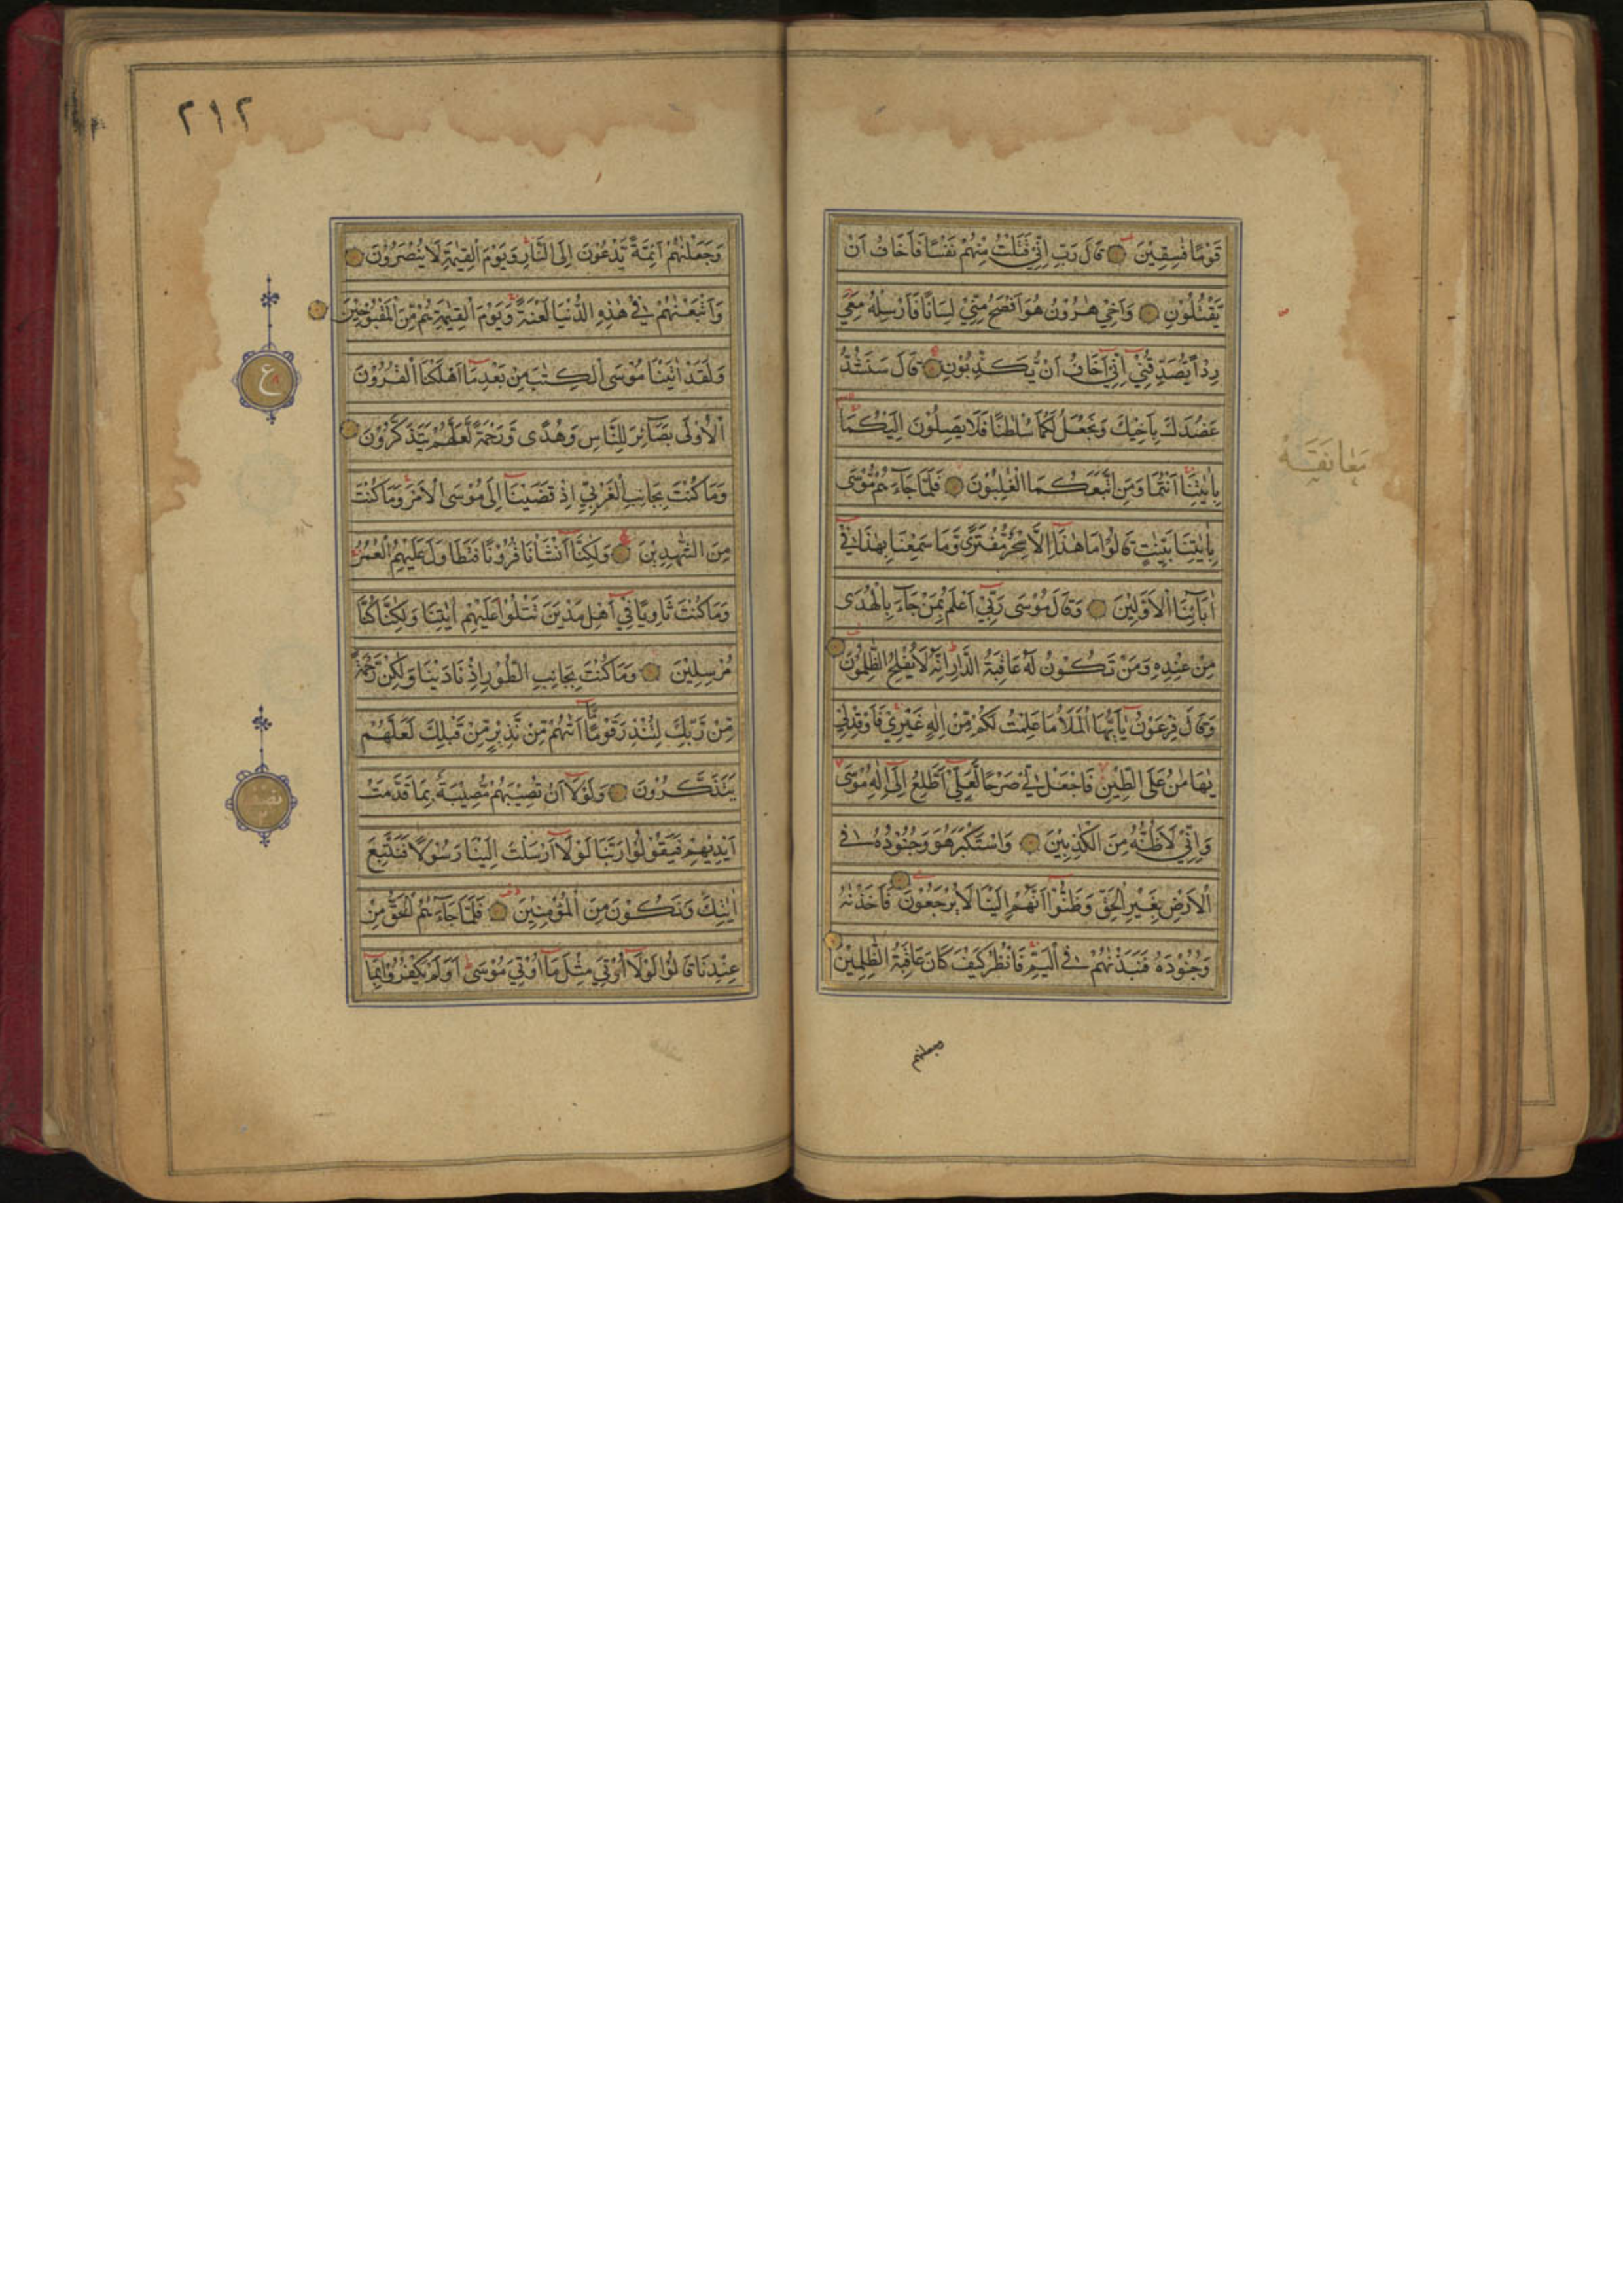 قَوْمًا فٰسِقِيْنَ قَالَ رَبِّ اِنِّيْ قَتَلْتُ مِنْهُمْ نَفْسًا فَاَخَافُ اَنْ
يَّقْتُلُوْنِ وَاَخِيْ هٰرُوْنُ هُوَ اَفْصَحُ مِنِّيْ لِسَانًا فَاَرْسِلْهُ مَعِيَ
رِدْاً يُّصَدِّقُنِيْ اِنِّيْ اَخَافُ اَنْ يُّكَذِّبُوْنِ قَالَ سَنَشُدُّ
عَضُدَكَ بِاَخِيْكَ وَنَجْعَلُ لَكُمَا سُلْطٰنًا فَلَا يَصِلُوْنَ اِلَيْكُمَا
بِاٰيٰتِنَا اَنْتُمَا وَمَنِ اتَّبَعَكُمَا الْغٰلِبُوْنَ فَلَمَّا جَاۤءَهُمْ مُّوْسٰى
بِاٰيٰتِنَا بَيِّنٰتٍ قَالُوْا مَا هٰذَا اِلَّا سِحْرٌ مُّفْتَرًى وَّمَا سَمِعْنَا بِهٰذَا فِيْ
اٰبَاۤئِنَا الْاَوَّلِيْنَ وَقَالَ مُوْسٰى رَبِّيْ اَعْلَمُ بِمَنْ جَاۤءَ بِالْهُدٰى
مِنْ عِنْدِهٖ وَمَنْ تَكُوْنُ لَهٗ عَاقِبَةُ الدَّارِ اِنَّهٗ لَا يُفْلِحُ الظّٰلِمُوْنَ
وَقَالَ فِرْعَوْنُ يٰاَيُّهَا الْمَلَاُ مَا عَلِمْتُ لَكُمْ مِّنْ اِلٰهٍ غَيْرِيْ فَاَوْقِدْ لِيْ
يٰهَامٰنُ عَلَى الطِّيْنِ فَاجْعَلْ لِّيْ صَرْحًا لَّعَلِّيْ اَطَّلِعُ اِلٰى اِلٰهِ مُوْسٰى
وَاِنِّيْ لَاَظُنُّهٗ مِنَ الْكٰذِبِيْنَ وَاسْتَكْبَرَ هُوَ وَجُنُوْدُهٗ فِي
الْاَرْضِ بِغَيْرِ الْحَقِّ وَظَنُّوْا اَنَّهُمْ اِلَيْنَا لَا يُرْجَعُوْنَ فَاَخَذْنٰهُ
وَجُنُوْدَهٗ فَنَبَذْنٰهُمْ فِي الْيَمِّ فَانْظُرْ كَيْفَ كَانَ عَاقِبَةُ الظّٰلِمِيْنَ
معانقه
وجعلنهم
٢١٢
وَجَعَلْنٰهُمْ اَئِمَّةً يَّدْعُوْنَ اِلَى النَّارِ وَيَوْمَ الْقِيٰمَةِ لَا يُنْصَرُوْنَ
وَاَتْبَعْنٰهُمْ فِيْ هٰذِهِ الدُّنْيَا لَعْنَةً وَّيَوْمَ الْقِيٰمَةِ هُمْ مِّنَ الْمَقْبُوْحِيْنَ
وَلَقَدْ اٰتَيْنَا مُوْسَى الْكِتٰبَ مِنْ بَعْدِ مَا اَهْلَكْنَا الْقُرُوْنَ
الْاُوْلٰى بَصَاۤئِرَ لِلنَّاسِ وَهُدًى وَّرَحْمَةً لَّعَلَّهُمْ يَتَذَكَّرُوْنَ
وَمَا كُنْتَ بِجَانِبِ الْغَرْبِيِّ اِذْ قَضَيْنَا اِلٰى مُوْسَى الْاَمْرَ وَمَا كُنْتَ
مِنَ الشّٰهِدِيْنَ وَلٰكِنَّا اَنْشَاْنَا قُرُوْنًا فَتَطَاوَلَ عَلَيْهِمُ الْعُمُرُ
وَمَا كُنْتَ ثَاوِيًا فِيْ اَهْلِ مَدْيَنَ تَتْلُوْا عَلَيْهِمْ اٰيٰتِنَا وَلٰكِنَّا كُنَّا
مُرْسِلِيْنَ وَمَا كُنْتَ بِجَانِبِ الطُّوْرِ اِذْ نَادَيْنَا وَلٰكِنْ رَّحْمَةً
مِّنْ رَّبِّكَ لِتُنْذِرَ قَوْمًا مَّا اَتٰهُمْ مِّنْ نَّذِيْرٍ مِّنْ قَبْلِكَ لَعَلَّهُمْ
يَتَذَكَّرُوْنَ وَلَوْلَا اَنْ تُصِيْبَهُمْ مُّصِيْبَةٌ بِمَا قَدَّمَتْ
اَيْدِيْهِمْ فَيَقُوْلُوْا رَبَّنَا لَوْلَا اَرْسَلْتَ اِلَيْنَا رَسُوْلًا فَنَتَّبِعَ
اٰيٰتِكَ وَنَكُوْنَ مِنَ الْمُؤْمِنِيْنَ فَلَمَّا جَاۤءَهُمُ الْحَقُّ مِنْ
عِنْدِنَا قَالُوْا لَوْلَا اُوْتِيَ مِثْلَ مَا اُوْتِيَ مُوْسٰى اَوَلَمْ يَكْفُرُوْا بِمَا
ع
نصف